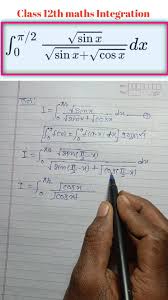 Class 12th maths Integration
∫₀^{π/2} √sin x / (√sin x + √cos x) dx
I = ∫₀^{π/2} √sin x / (√sin x + √cos x) dx — ①
I = ∫₀^{π/2} √sin(π/2 - x) / (√sin(π/2 - x) + √cos(π/2 - x)
I = ∫₀^{π/2} √cos x / √cos x